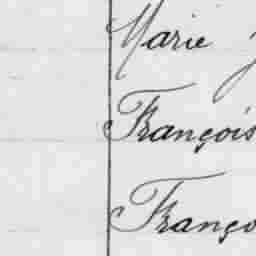 Marie
François
Franço